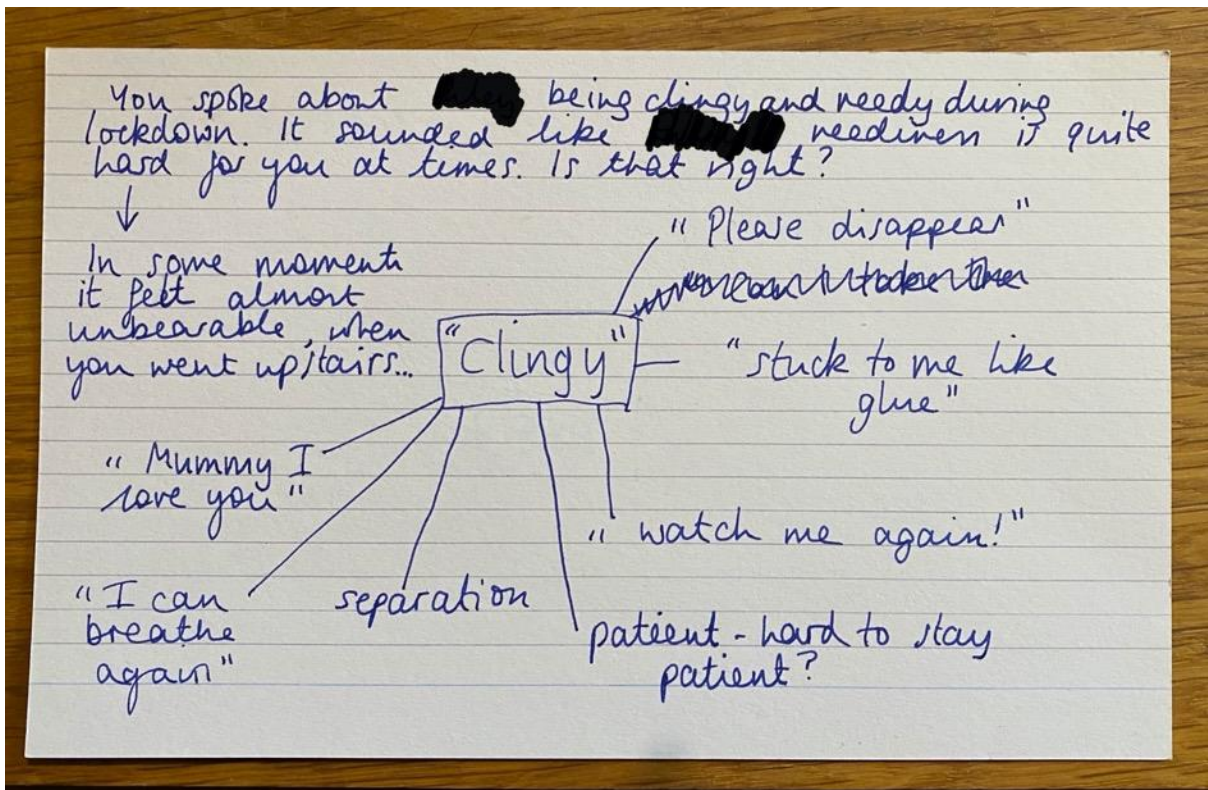 You spoke about being clingy and needy during
lockdown. It sounded like neediness is quite
hard for you at times. Is that right?
↓
In some moments
it felt almost
unbearable, when
you went upstairs...
"Please disappear"
"Clingy"
"stuck to me like
glue"
"Mummy I
love you"
"watch me again!"
"I can
breathe
again"
separation
patient - hard to stay
patient?